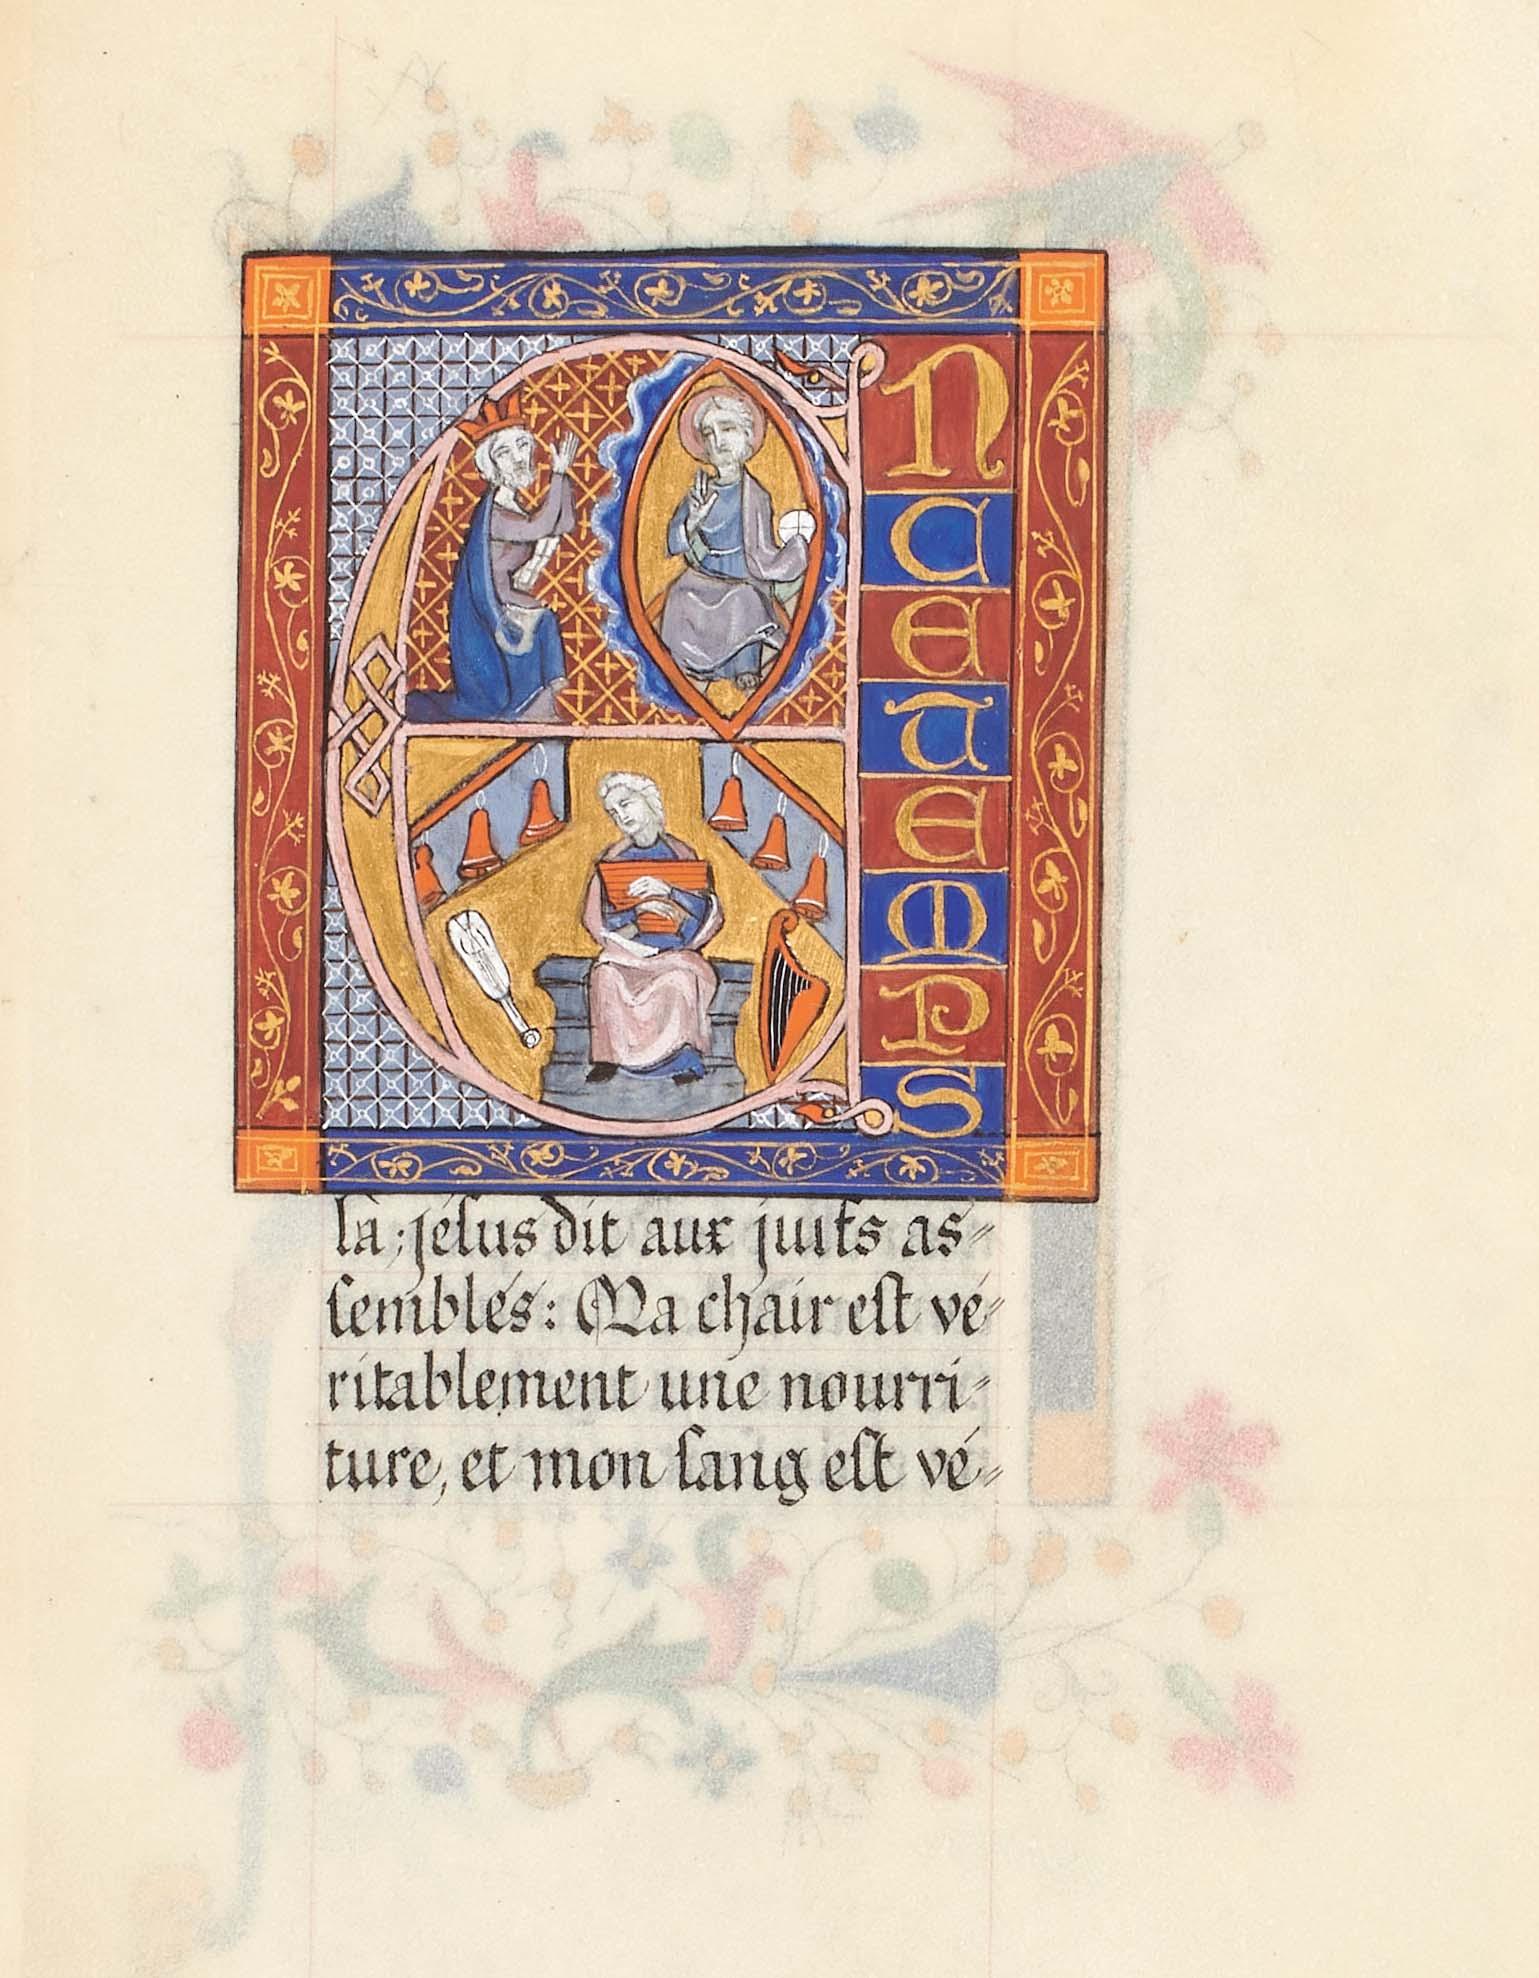 EN CE TEMPS
là; jésus dit aux juifs as=
semblés: Ma chair est vé=
ritablement une nourri=
ture, et mon sang est vé=